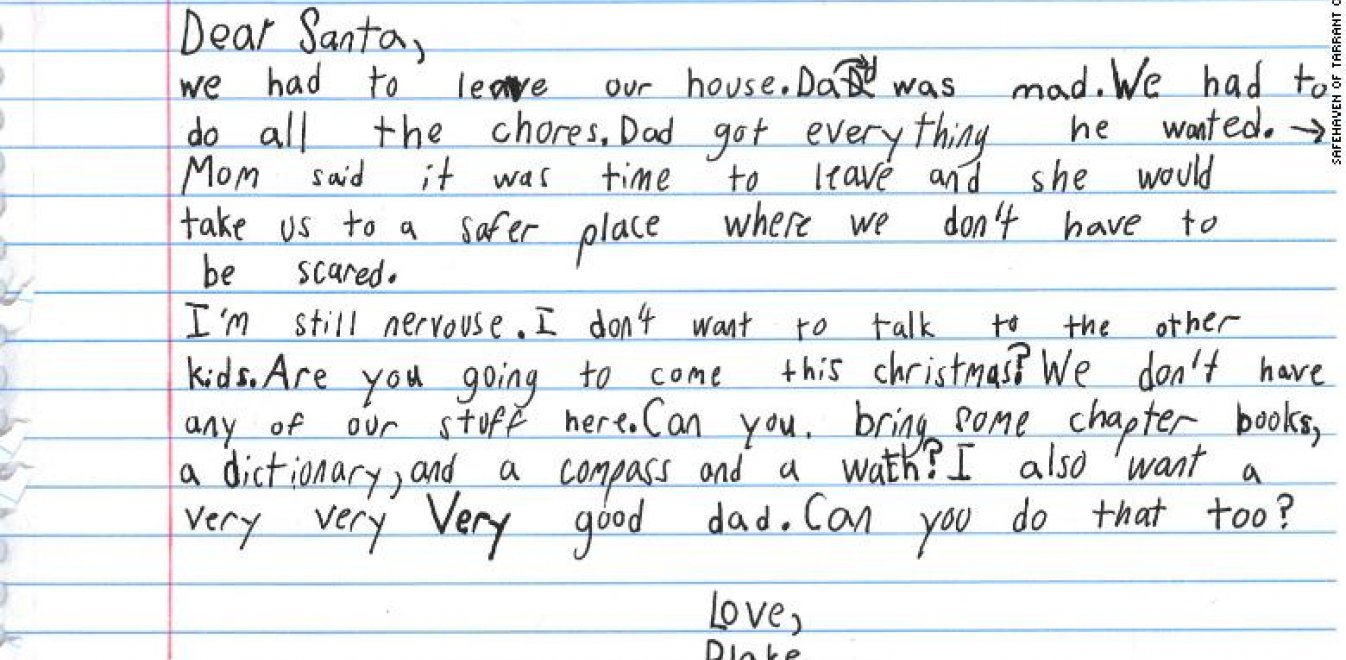 Dear Santa,
we had to leave our house.Dad was mad.We had to
do all the chores.Dad got everything he wanted. →
Mom said it was time to leave and she would
take us to a safer place where we don't have to
be scared.
I'm still nervouse.I don't want to talk to the other
kids.Are you going to come this christmas?We don't have
any of our stuff here.Can you. bring some chapter books,
a dictionary,and a compass and a wath?I also want a
very very very good dad.Can you do that too?
Love,
Blake
SAFEHAVEN OF TARRANT